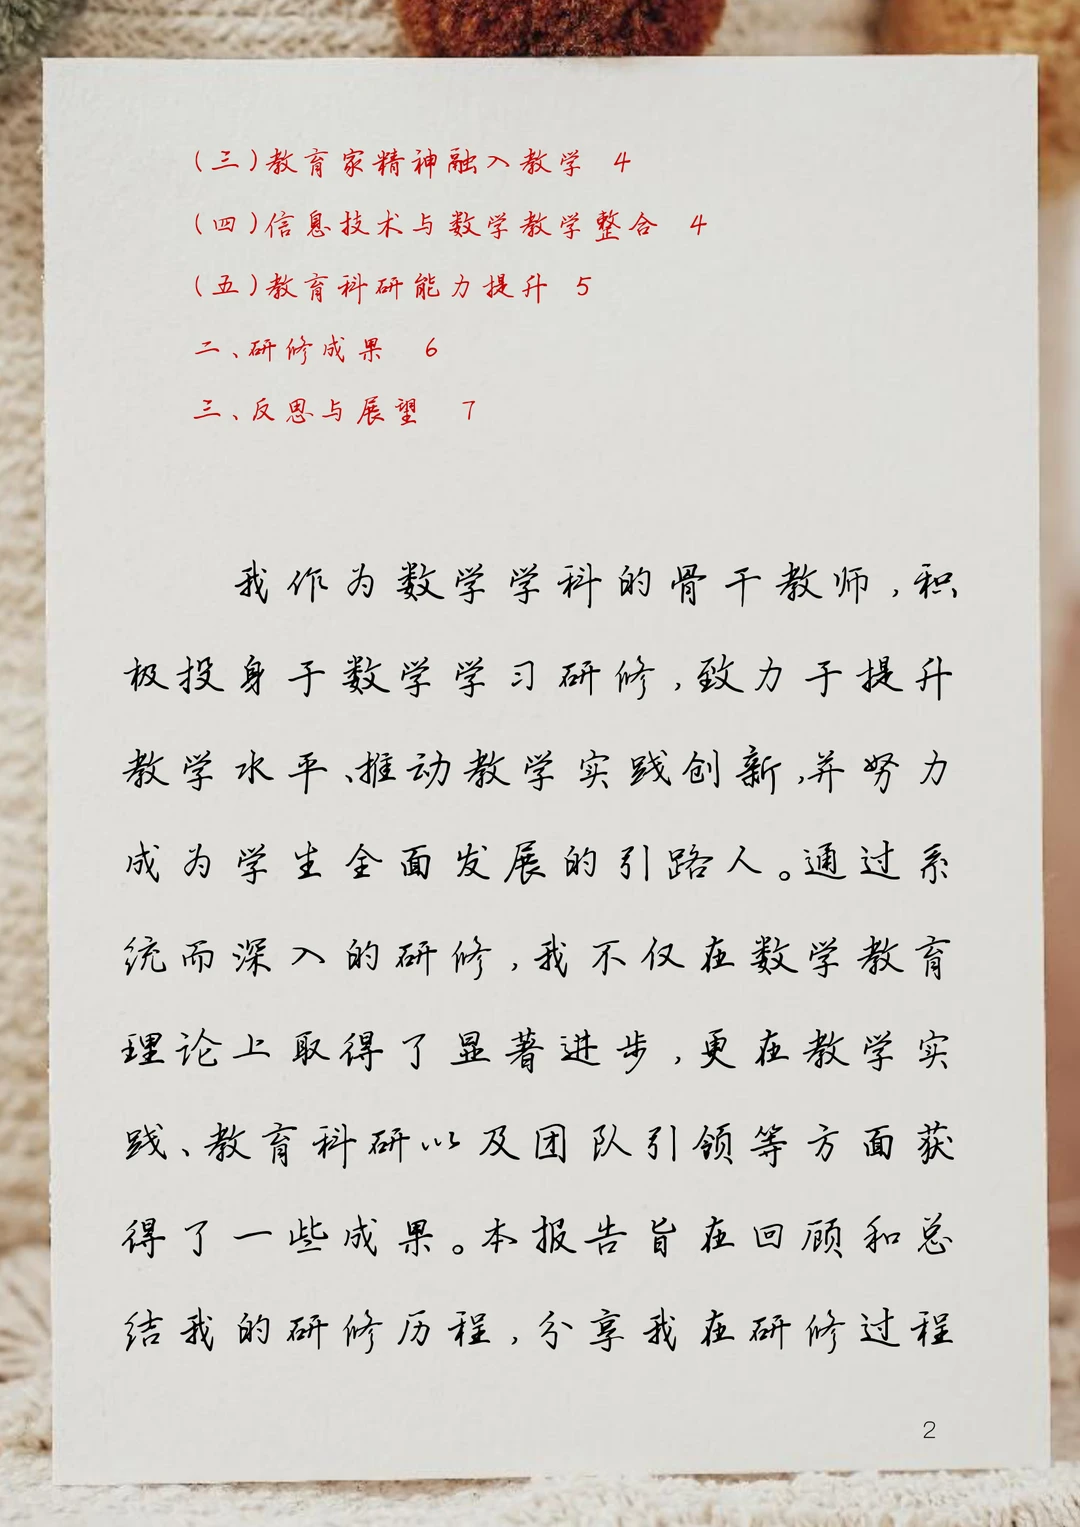 (三)教育家精神融入教学 4
(四)信息技术与数学教学整合 4
(五)教育科研能力提升 5
二、研修成果 6
三、反思与展望 7
我作为数学学科的骨干教师,积
极投身于数学学习研修,致力于提升
教学水平、推动教学实践创新,并努力
成为学生全面发展的引路人。通过系
统而深入的研修,我不仅在数学教育
理论上取得了显著进步,更在教学实
践、教育科研以及团队引领等方面获
得了一些成果。本报告旨在回顾和总
结我的研修历程,分享我在研修过程
2